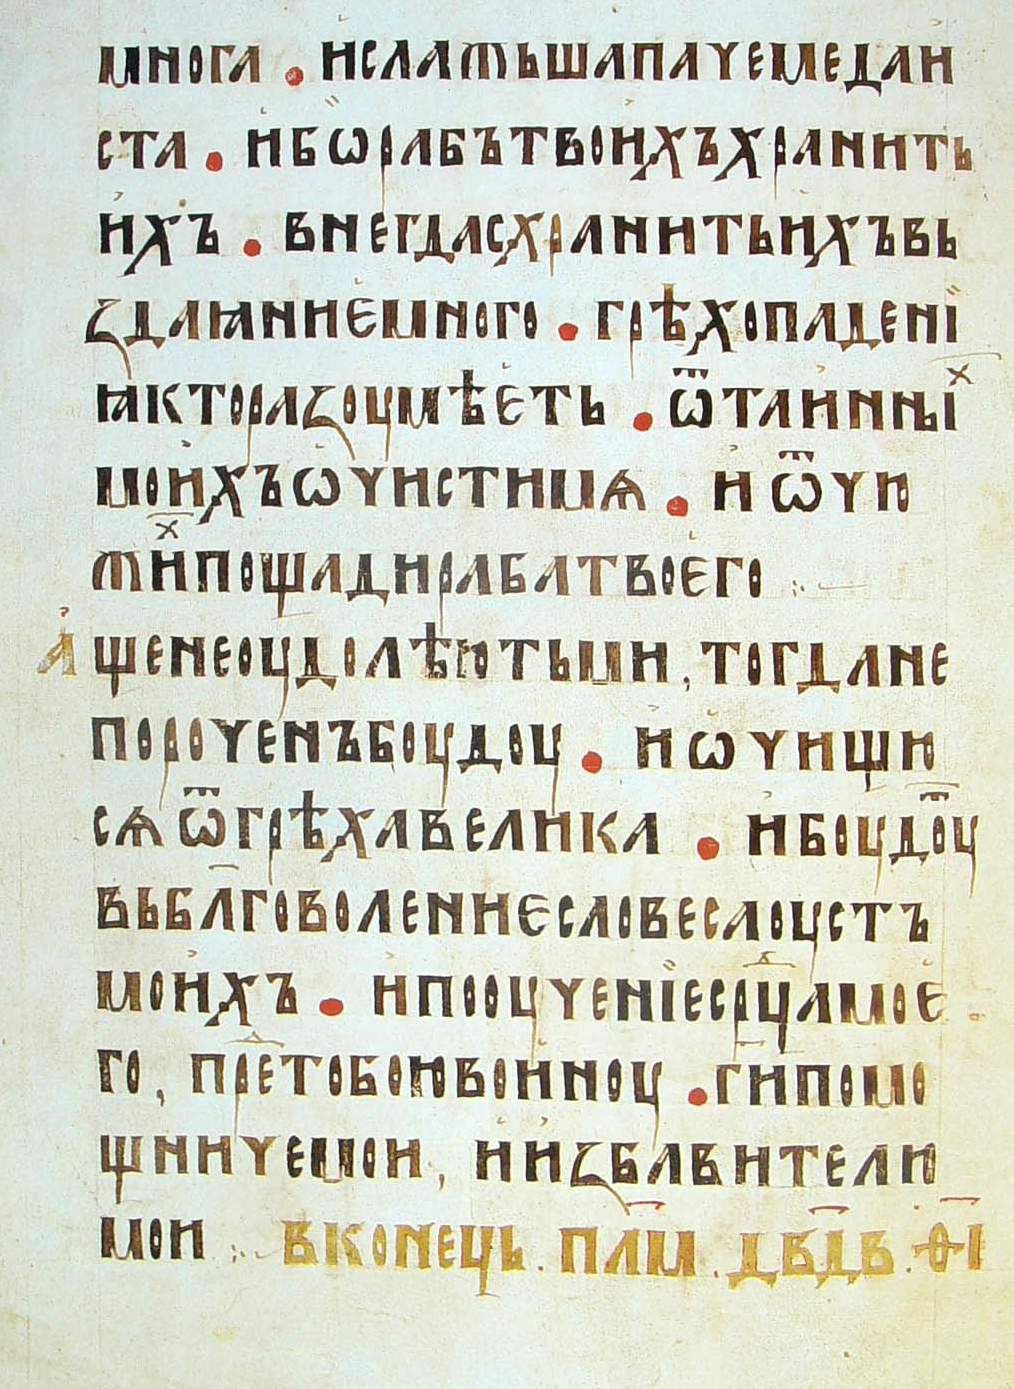 многа • и слажьша паче меда и
ста • ибѡ рабъ твои хъ хранить
ихъ • внегда схранить ихъ вь
здаꙗние много • грѣхопадені
ꙗ кто разоумѣеть • ѿ таинныⷯі
моихъ ѡчисти мѧ • и ѿ чю
жиⷯ пощади раба твоего
аще не оудолѣють ми, тогда не
пороченъ боудоу • и ѡчищю
сѧ ѿ грѣха велика • и боудоуⷮ
въ бл҃говоление словеса оустъ
моихъ • и пооучение срⷣца мое
го, преⷣ тобою воиноу • г҃и помо
щниче мои, и избавителю
мои вконець . пл҃м . дв҃дв҃ . ѳ҃і